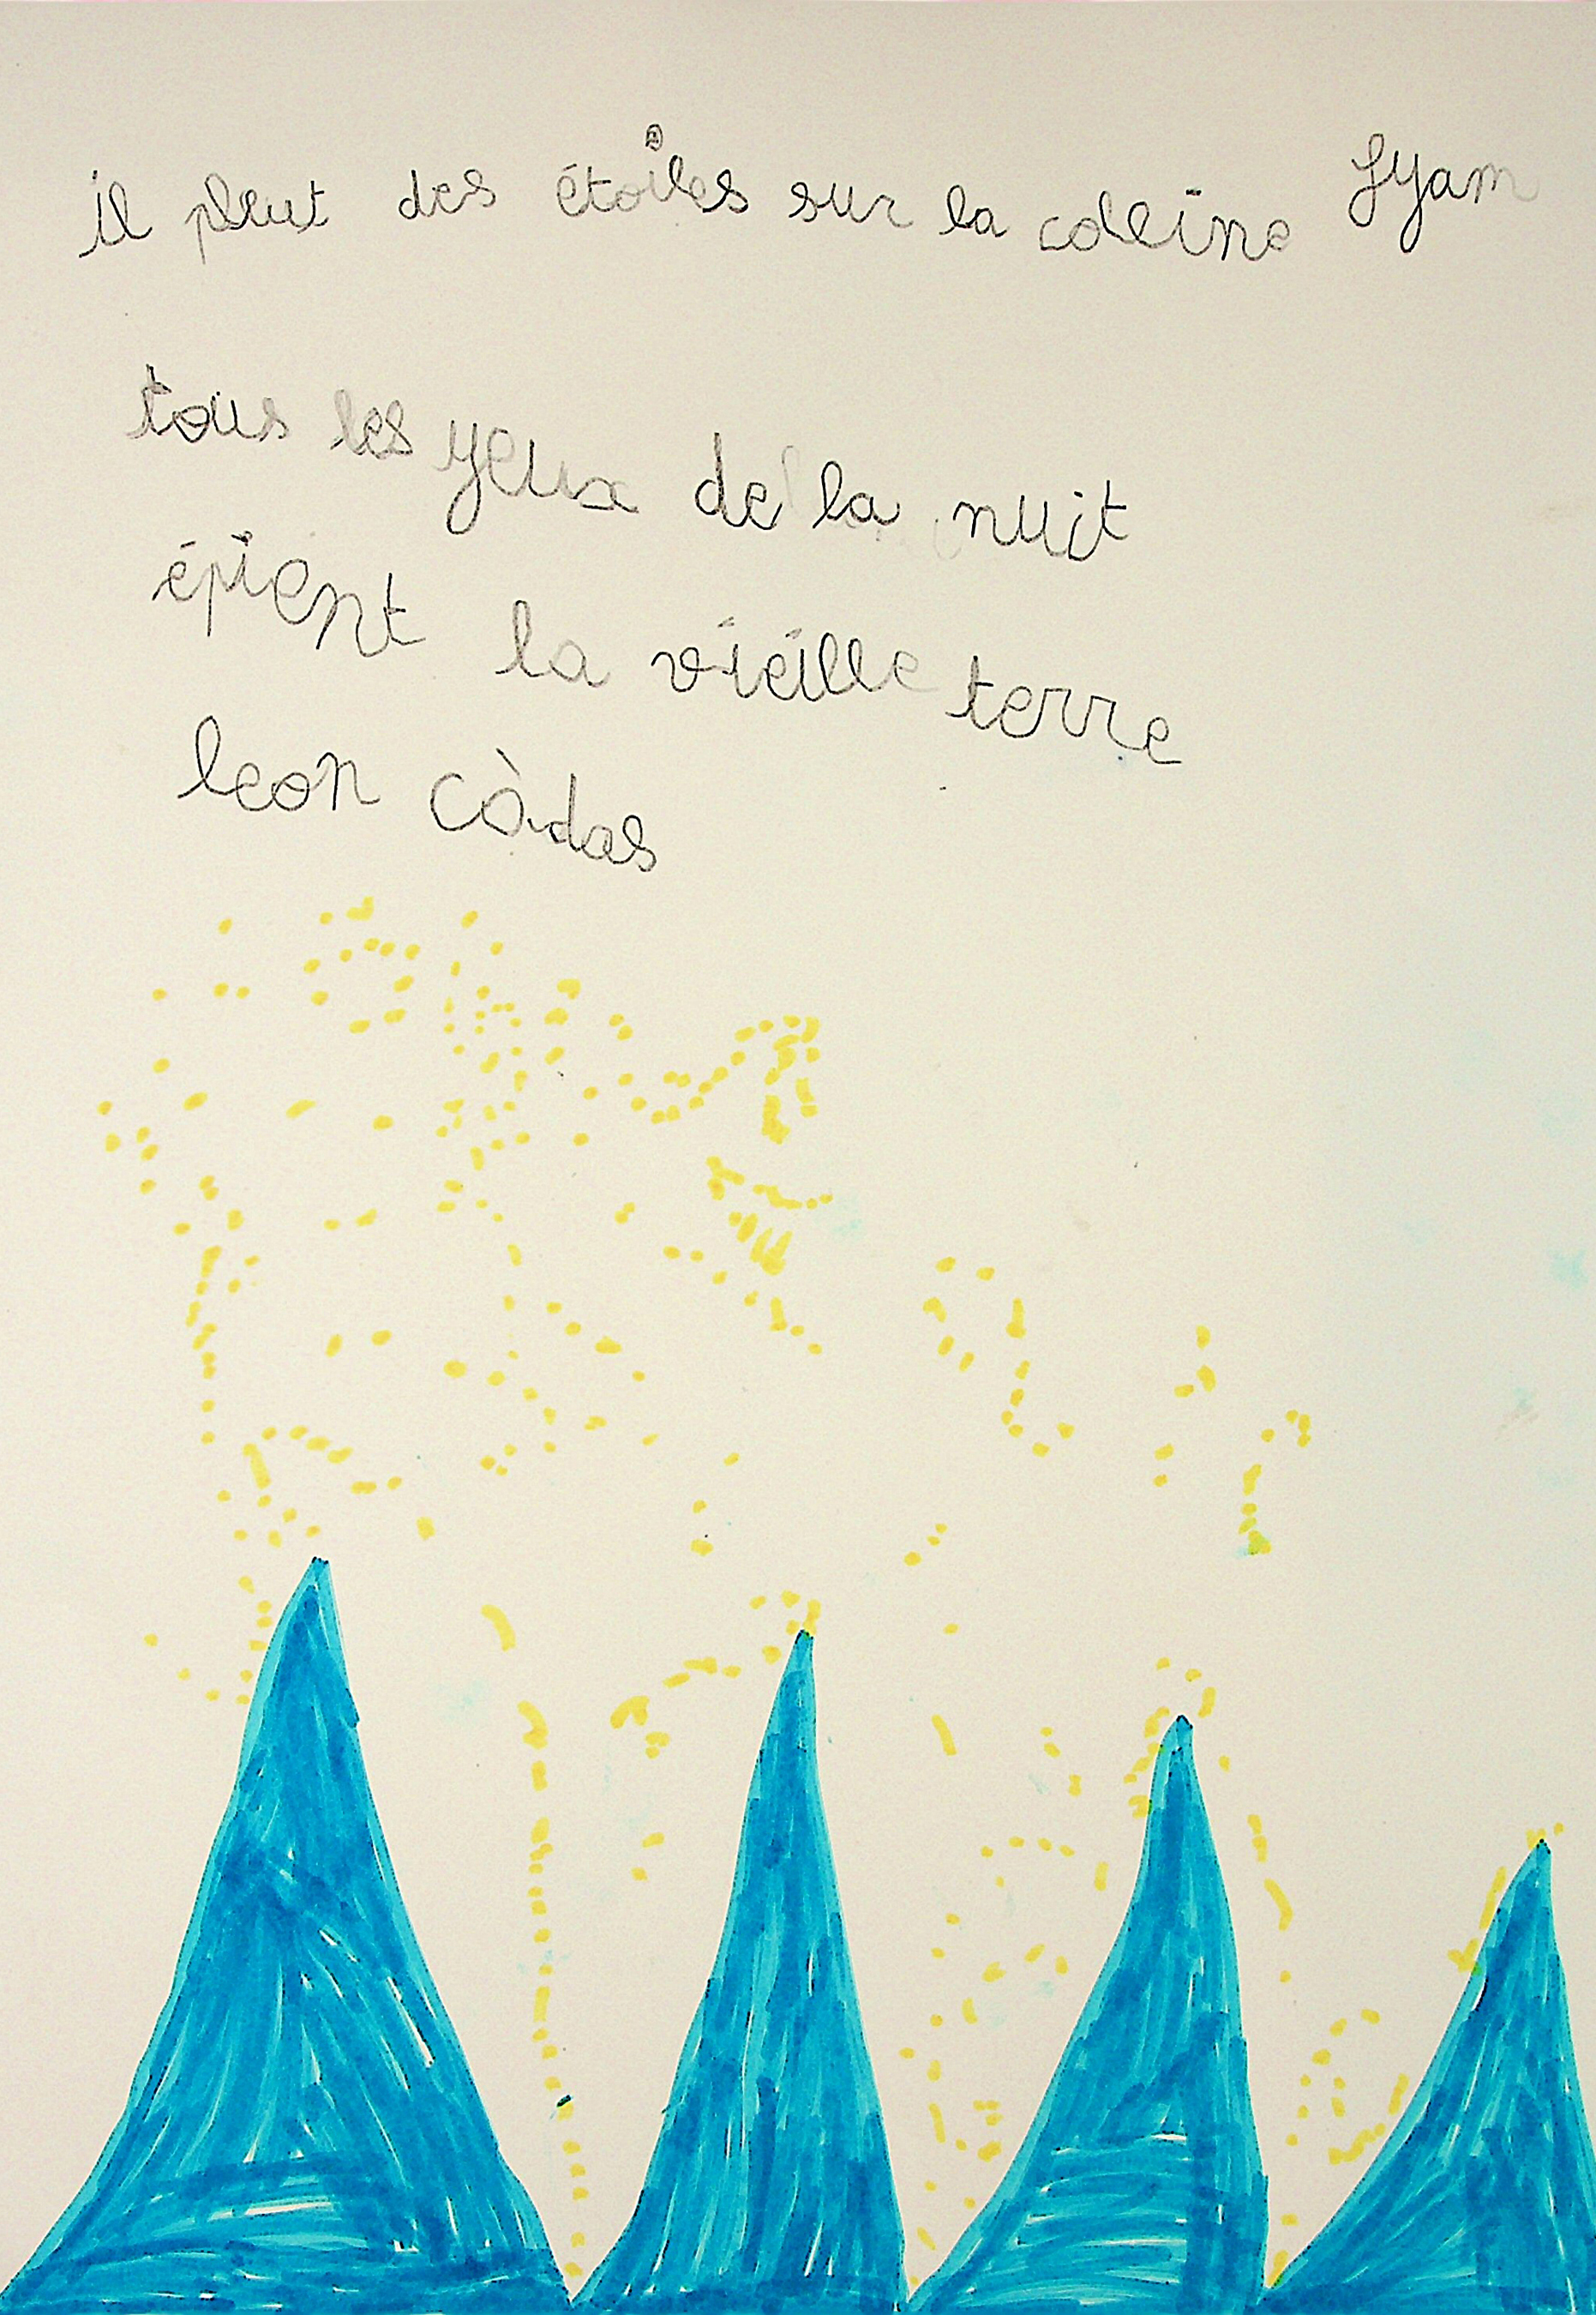 il pleut des étoiles sur la colline Lyam
tous les yeux de la nuit
épient la vieille terre
leon còdas